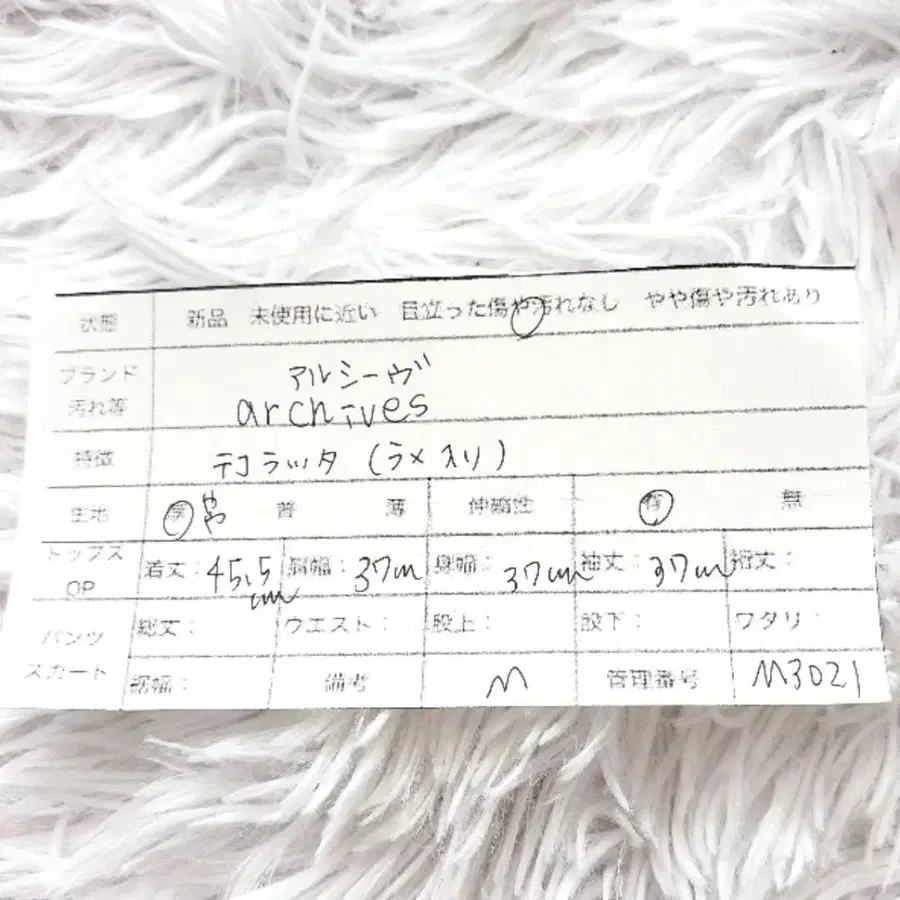 状態 新品 未使用に近い 目立った傷や汚れなし やや傷や汚れあり
ブランド アルシーヴ
汚れ等 archives
特徴 テコラッタ (ラメ入り)
生地 厚 普 薄 伸縮性 有 無
トップス
OP
着丈: 45.5cm 肩幅: 37cm 身幅: 37cm 袖丈: 37cm 裄丈:
パンツ
スカート
総丈: ウエスト: 股上: 股下: ワタリ:
裾幅: 備考 M 管理番号 M3021